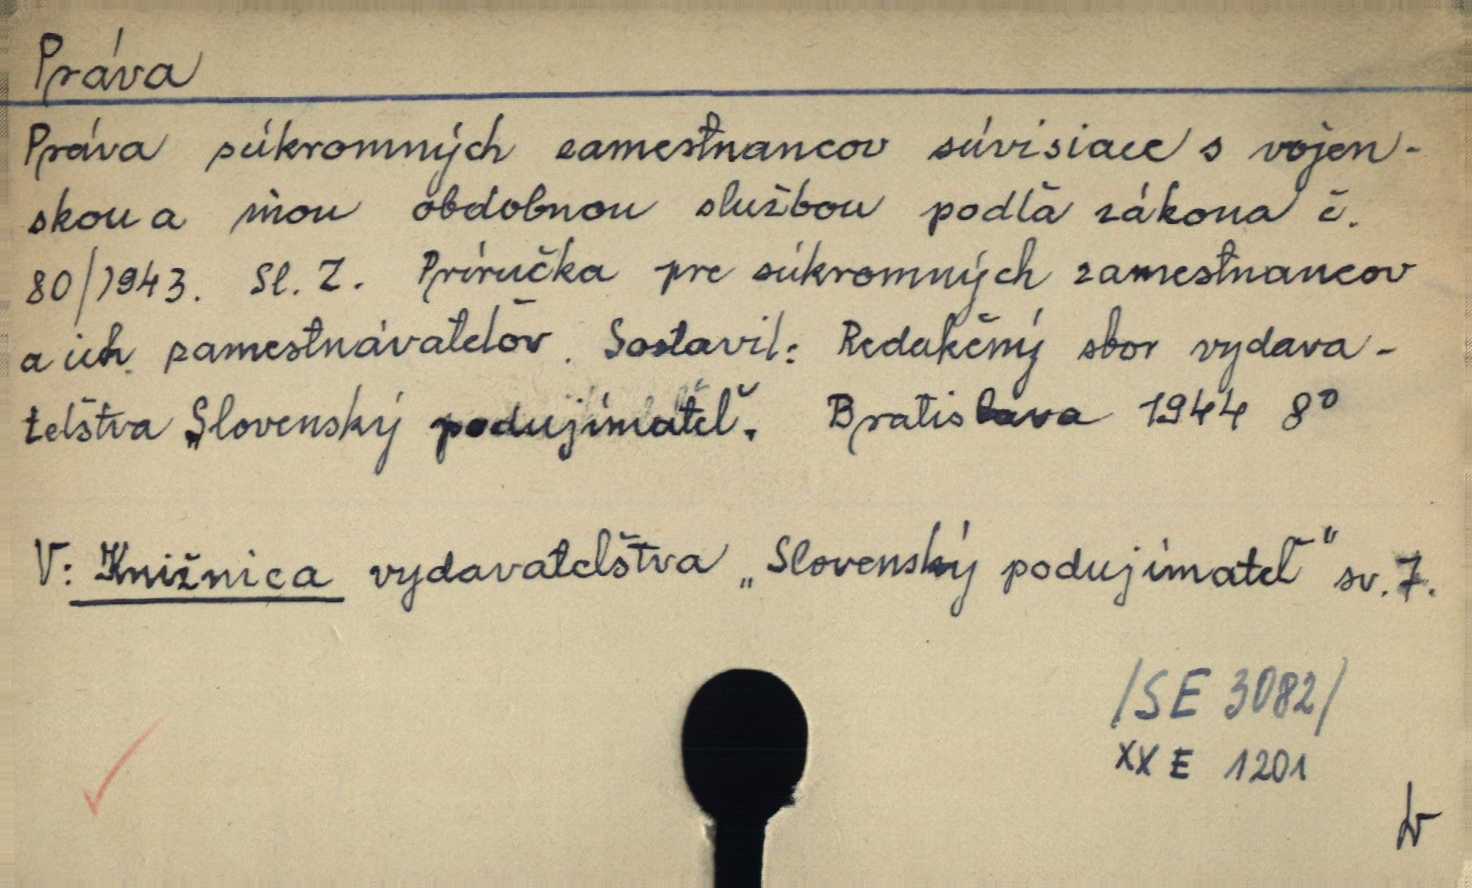 Práva
Práva súkromných zamestnancov súvisiace s vojen-
skou a inou obdobnou službou podľa zákona č.
80/1943. Sl. Z. Príručka pre súkromných zamestnancov
a ich zamestnávateľov. Sostavil: Redakčný sbor vydava-
teľstva „Slovenský podujímateľ". Bratislava 1944 8°
V: Knižnica vydavateľstva „Slovenský podujímateľ" sv. 7.
/SE 3082/
XX E 1201